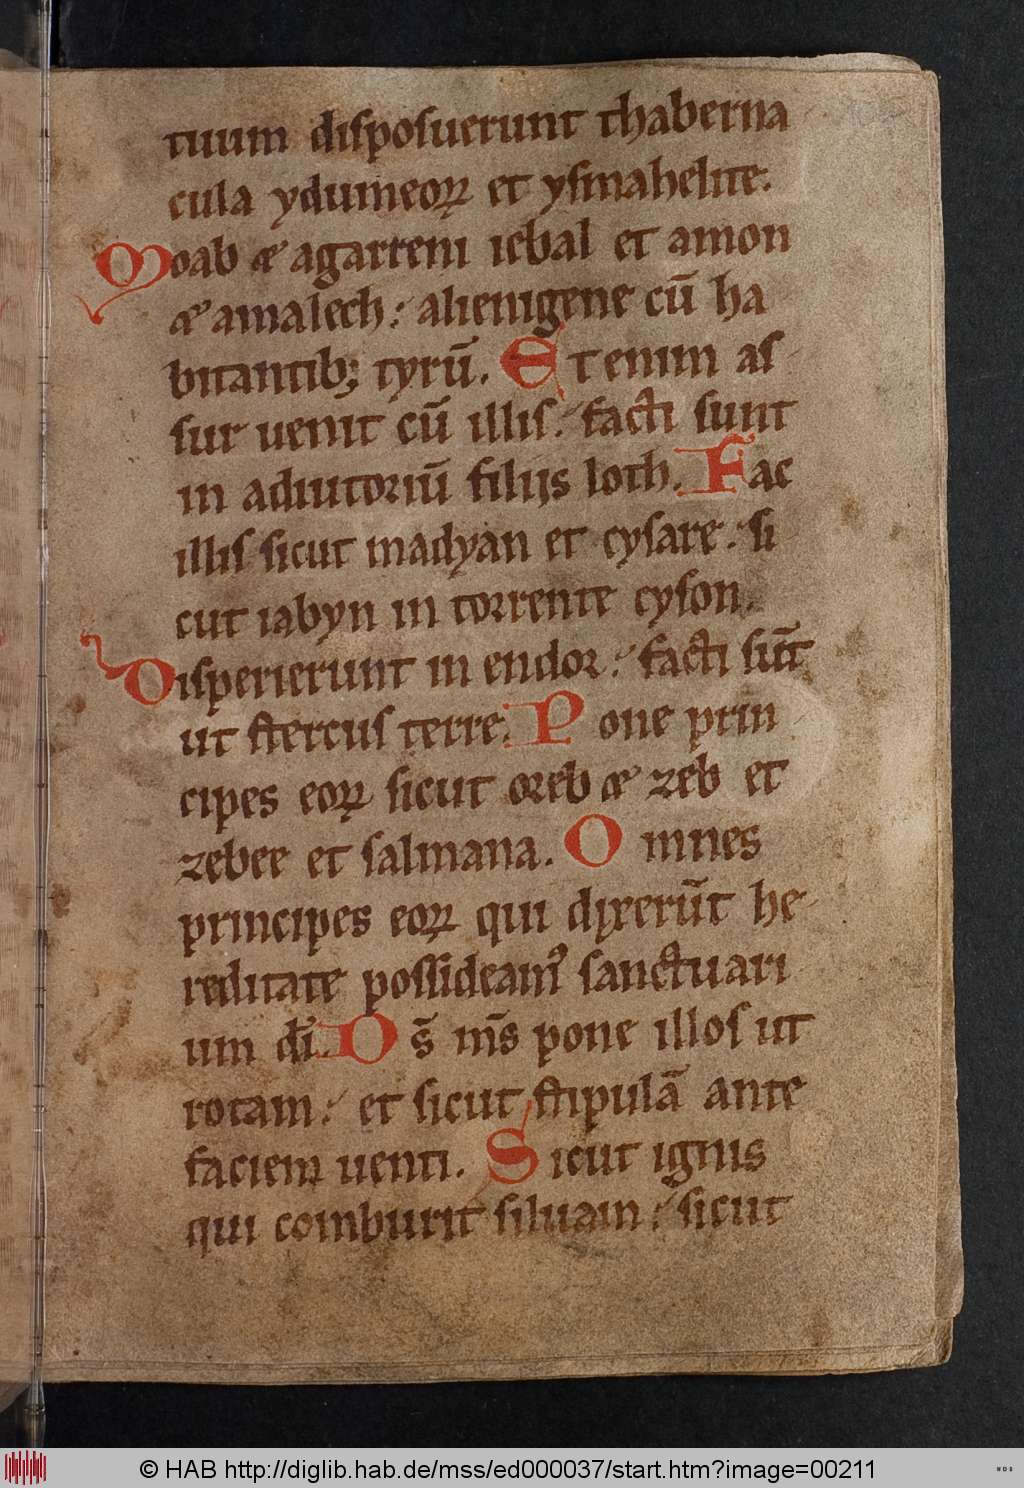 tuum disposuerunt thaberna
cula ydumeoꝝ et ysmahelite.
Moab & agarreni iebal et amon
& amalech: alienigene cū ha
bitantibꝫ tyrū. Et enim as
sur uenit cū illis: facti sunt
in adiutoriū filijs loth. Fac
illis sicut madyan et cysare: si
cut iabyn in torrente cyson.
Disperierunt in endor: facti sūt
ut stercus terre. Pone prin
cipes eoꝝ sicut oreb & zeb et
zebee et salmana. Omnes
principes eoꝝ qui dixerūt he
reditate possideamꝰ sanctuari
um dī. Ds̄ ms̄ pone illos ut
rotam: et sicut stipulā ante
faciem uenti. Sicut ignis
qui comburit siluam: sicut
© HAB http://diglib.hab.de/mss/ed000037/start.htm?image=00211